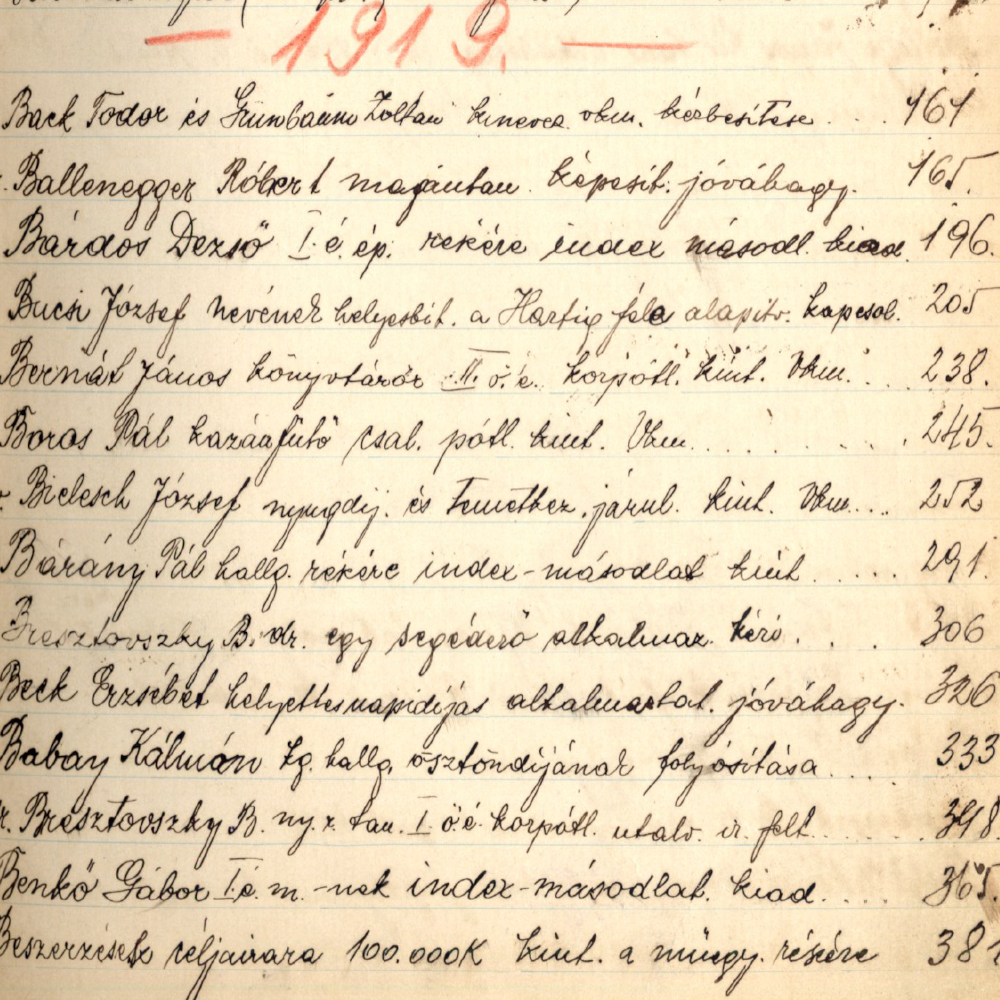 — 1919. —
Back Todor és Grünbaum Zoltán kinevez. vkm. kézbesitése . . . 161
Ballenegger Róbert magántan. képesit. jóváhagy. 165.
Bárdos Dezső I. é. ép. részére index másodl. kiad. 196.
Bucsi József nevének helyesbit. a Hartig féle alapitv. kapcsol. 205
Bernát János könyvtárőr II. ö. é. korpótl. kiut. Vkm. . . 238.
Boros Pál kazánfűtő csal. pótl. kiut. Vkm. . . . . . . . . 245.
Bielesch József nyugdij. és temetkez. járul. kiut. Vkm. . . . 252
Bárány Pál hallg. részére index-másodlat kiut . . . . . 291.
Bresztovszky B. dr. egy segéderő alkalmaz. kéri . . . 306
Beck Erzsébet helyettes napidíjás alkalmaztat. jóváhagy. 326
Babay Kálmán hallg. ösztöndíjának folyósítása . . . 333
r. Bresztovszky B. ny. r. tan. I. ö. é. korpótl. utalv. ir. felt. . . . . 348.
Benkő Gábor I. é. m. -nek index-másodlat. kiad. . . . . 365.
Beszerzések céljaira 100.000K kiut. a műegy. részére 38